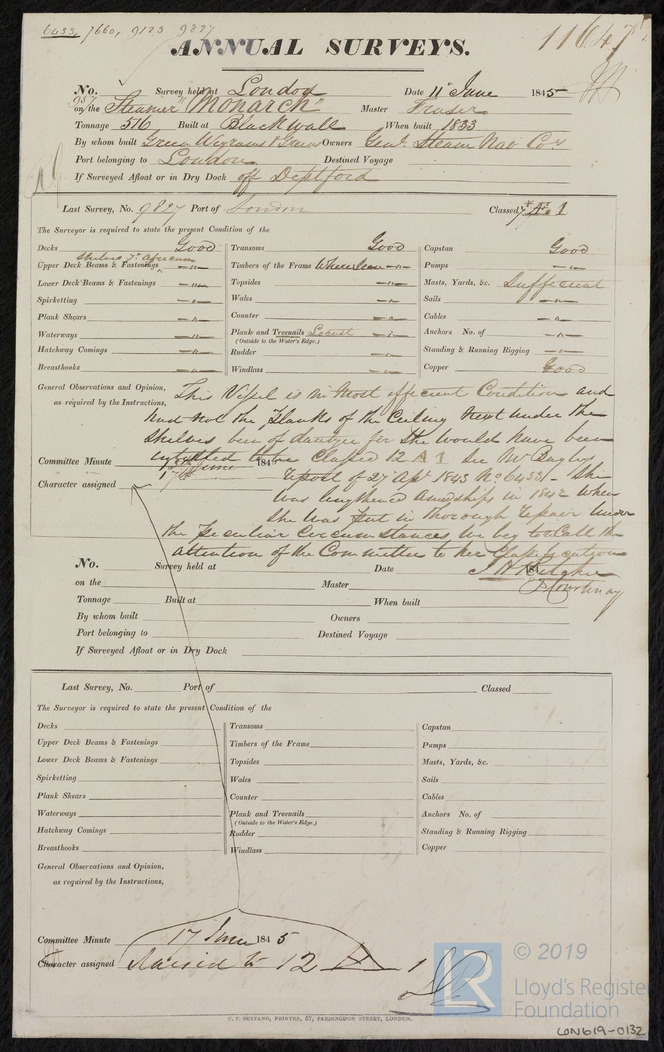 6433, 7660, 9123 9827
ANNUAL SURVEYS.
11647
No. 957 Survey held at London Date 11th June 1845
on the Steamer "Monarch" Master Fraser
Tonnage 516 Built at Blackwall When built 1833
By whom built Green Wigrams & Green Owners Genl. Steam Nav Co.
Port belonging to London Destined Voyage
If Surveyed Afloat or in Dry Dock off Deptford
Last Survey, No. 9827 Port of London Classed 1
The Surveyor is required to state the present Condition of the
Decks Good Transoms Good Capstan Good
Upper Deck Beams & Fastenings shelves African -"- Timbers of the Frame Where seen -"- Pumps -"-
Lower Deck Beams & Fastenings -"- Topsides -"- Masts, Yards, &c. Sufficient
Spirketting -"- Wales -"- Sails -"-
Plank Shears -"- Counter -"- Cables -"-
Waterways -"- Plank and Treenails Locust -"- Anchors No. of -"-
(Outside to the Water's Edge.)
Hatchway Comings -"- Rudder -"- Standing & Running Rigging -"-
Breasthooks -"- Windlass -"- Copper Good
General Observations and Opinion, This Vessel is in most efficient Condition and
as required by the Instructions, had not the Planks of the Ceiling next under the
shelves been of for She would have been
entitled to be Classed 12 A 1 See Mr Bayley
Committee Minute 17th June 1845
Report of 27 Apl 1843 No 6433 - She
Character assigned
was lengthened amidships in 1842 when
She was put in thorough repair under
the peculiar Circumstances we beg to call the
attention of the Committee to her Classification
No. Survey held at Date 184
J H
Courtenay
on the Master
Tonnage Built at When built
By whom built Owners
Port belonging to Destined Voyage
If Surveyed Afloat or in Dry Dock
Last Survey, No. Port of Classed
The Surveyor is required to state the present Condition of the
Decks Transoms Capstan
Upper Deck Beams & Fastenings Timbers of the Frame Pumps
Lower Deck Beams & Fastenings Topsides Masts, Yards, &c.
Spirketting Wales Sails
Plank Shears Counter Cables
Waterways Plank and Treenails Anchors No. of
(Outside to the Water's Edge.)
Hatchway Comings Rudder Standing & Running Rigging
Breasthooks Windlass Copper
General Observations and Opinion,
as required by the Instructions,
Committee Minute 17 June 1845
Character assigned Raised to 12 A 1
LR
© 2019
Lloyd's Register
Foundation
C. F. SEYFANG, PRINTER, 57, FARRINGDON STREET, LONDON.
LON619-0132